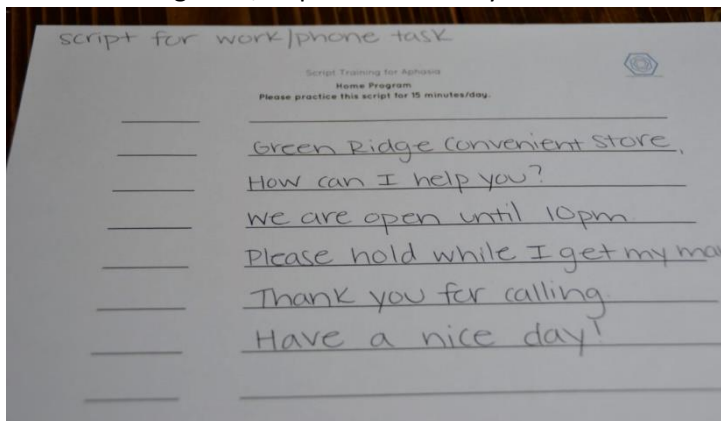 script for work/phone task
Script Training for Aphasia
Home Program
Please practice this script for 15 minutes/day.
Green Ridge Convenient Store,
How can I help you?
We are open until 10pm
Please hold while I get my
Thank you for calling.
Have a nice day!